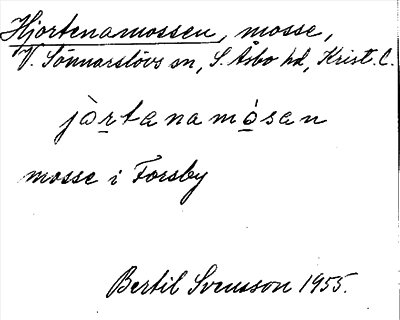 Hjortenamossen, mosse,
V. Sönnarslövs sn, S. Åsbo hd, Krist. l.
jòrtanamósan
mosse i Forsby
Bertil Svensson 1955.